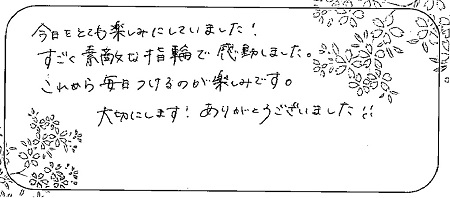 今日をとても楽しみにしていました!
すごく素敵な指輪で感動しました。
これから毎日つけるのが楽しみです。
大切にします!ありがとうございました!!